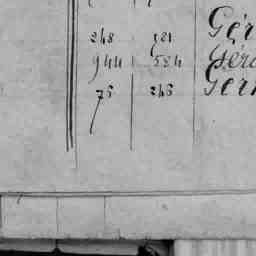 248 521 Gér
944 524 Géra
76 246 Germ